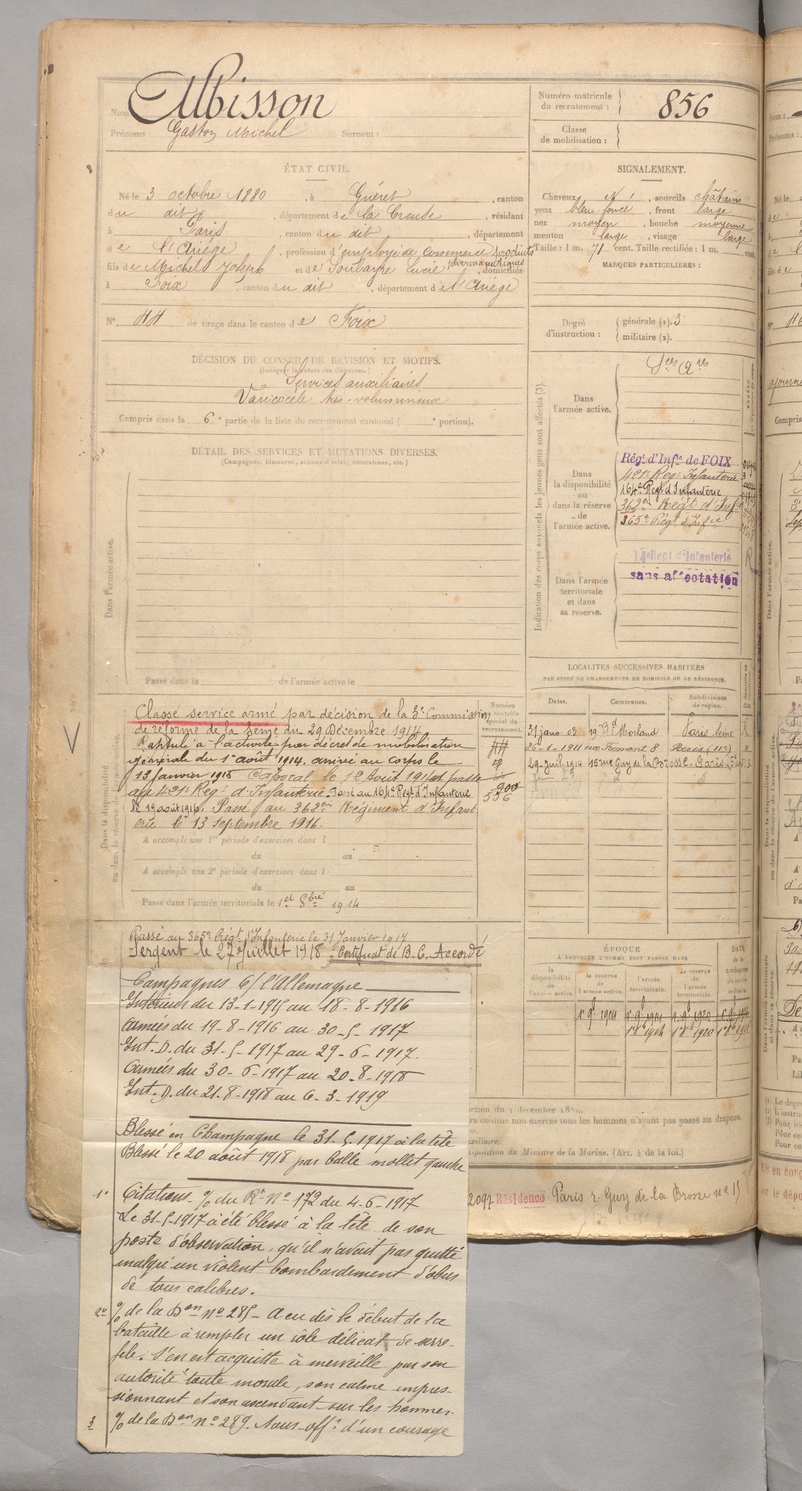 Nom : Albisson
Prénoms : Gaston Michel Surnom :
Numéro matricule du recrutement : 856
Classe de mobilisation :
ÉTAT CIVIL.
Né le 3 octobre 1880, à Guéret, canton
du dit, département de la Creuse, résidant
à Paris, canton du dit, département
de l'Ariège, profession d'employé de commerce produits pharmaceutiques
fils de Michel Joseph et de Lucie, domiciliés
à Foix, canton du dit, département de l'Ariège
N° 44 de tirage dans le canton de Foix
SIGNALEMENT.
Cheveux et, sourcils châtain
yeux bleu foncé, front large
nez moyen, bouche moyenne
menton large, visage large
Taille : 1 m. 71 cent. Taille rectifiée : 1 m.
MARQUES PARTICULIÈRES :
Degré d'instruction : générale (1). 3
militaire (2).
DÉCISION DU CONSEIL DE REVISION ET MOTIFS.
Services auxiliaires
Varicocèle très volumineux
Compris dans la 6e partie de la liste du recrutement cantonal ( e portion).
DÉTAIL DES SERVICES ET MUTATIONS DIVERSES.
(Campagnes, blessures, actions d'éclat, décorations, etc.)
Dans l'armée active.
Passé dans la de l'armée active le
Indication des corps auxquels les jeunes gens sont affectés (3).
Dans l'armée active.
Dans la disponibilité ou dans la réserve de l'armée active.
Régt d'Infie de FOIX
421e Reg. Infanterie
164e Régt d'Infanterie
362e Régt d'Inf
365e Régt d'Infie
Dans l'armée territoriale et dans sa réserve.
Régt d'Infanterie
sans affectation
Classé service armé par décision de la 3e Commission
de réforme de la Seine du 29 Décembre 1914
Rappelé à l'activité par décret de mobilisation
générale du 1er août 1914, arrivé au corps le
13 janvier 1915 Caporal le 12 Août 1916 passé
au 421e Reg. d'Infanterie. Passé au 164e Régt d'Infanterie
le 19 août 1916. Passé au 362e Régiment d'Infant
erie le 13 septembre 1916.
A accompli une 1re période d'exercices dans l
du au
A accompli une 2e période d'exercices dans l
du au
Passé dans l'armée territoriale le 1er 8bre 1914
Numéro au contrôle spécial du recrutement.
900
536
LOCALITÉS SUCCESSIVES HABITÉES
PAR SUITE DE CHANGEMENTS DE DOMICILE OU DE RÉSIDENCE.
Dates. Communes. Subdivisions de région.
31 janv 02 19 Bd Morland Paris Seine R
1911 8 (113) R
29 Juil 1914 15 rue Guy de la Brosse Paris
Passé au 365e Régt d'Infanterie le 31 Janvier 1917
Sergent le 27 Juillet 1918 Certificat de B. C. Accordé
Campagnes C/ l'Allemagne
Intérieur du 13-1-1915 au 18-8-1916
Armées du 19-8-1916 au 30-5-1917
Int. D. du 31-5-1917 au 29-6-1917
Armées du 30-6-1917 au 20-8-1918
Int. D. du 21-8-1918 au 6-3-1919
Blessé en Champagne le 31-5-1917 à la tête
Blessé le 20 août 1918 par balle mollet gauche
1° Citations. % du Rt N° 172 du 4-6-1917
Le 31-5-1917 a été blessé à la tête de son
poste d'observation, qu'il n'avait pas quitté
malgré un violent bombardement d'obus
de tous calibres.
2° % de la Don n° 285 - A eu dès le début de la
bataille à remplir un rôle délicat de serre-
file. S'en est acquitté à merveille par son
autorité toute morale, son calme impres-
sionnant et son ascendant sur les hommes.
3 % de la Don n° 289. Sous-offr d'un courage
ÉPOQUE
À LAQUELLE L'HOMME DOIT PASSER DANS
la disponibilité de l'armée active. la réserve de l'armée active. l'armée territoriale. la réserve de l'armée territoriale.
DATE
de la LIBÉRATION du service militaire.
ction du 3 décembre 1880.
sposition du Ministre de la Marine. (Art. 4 de la loi.)
2097 Résidence Paris r. Guy de la Brosse n° 15